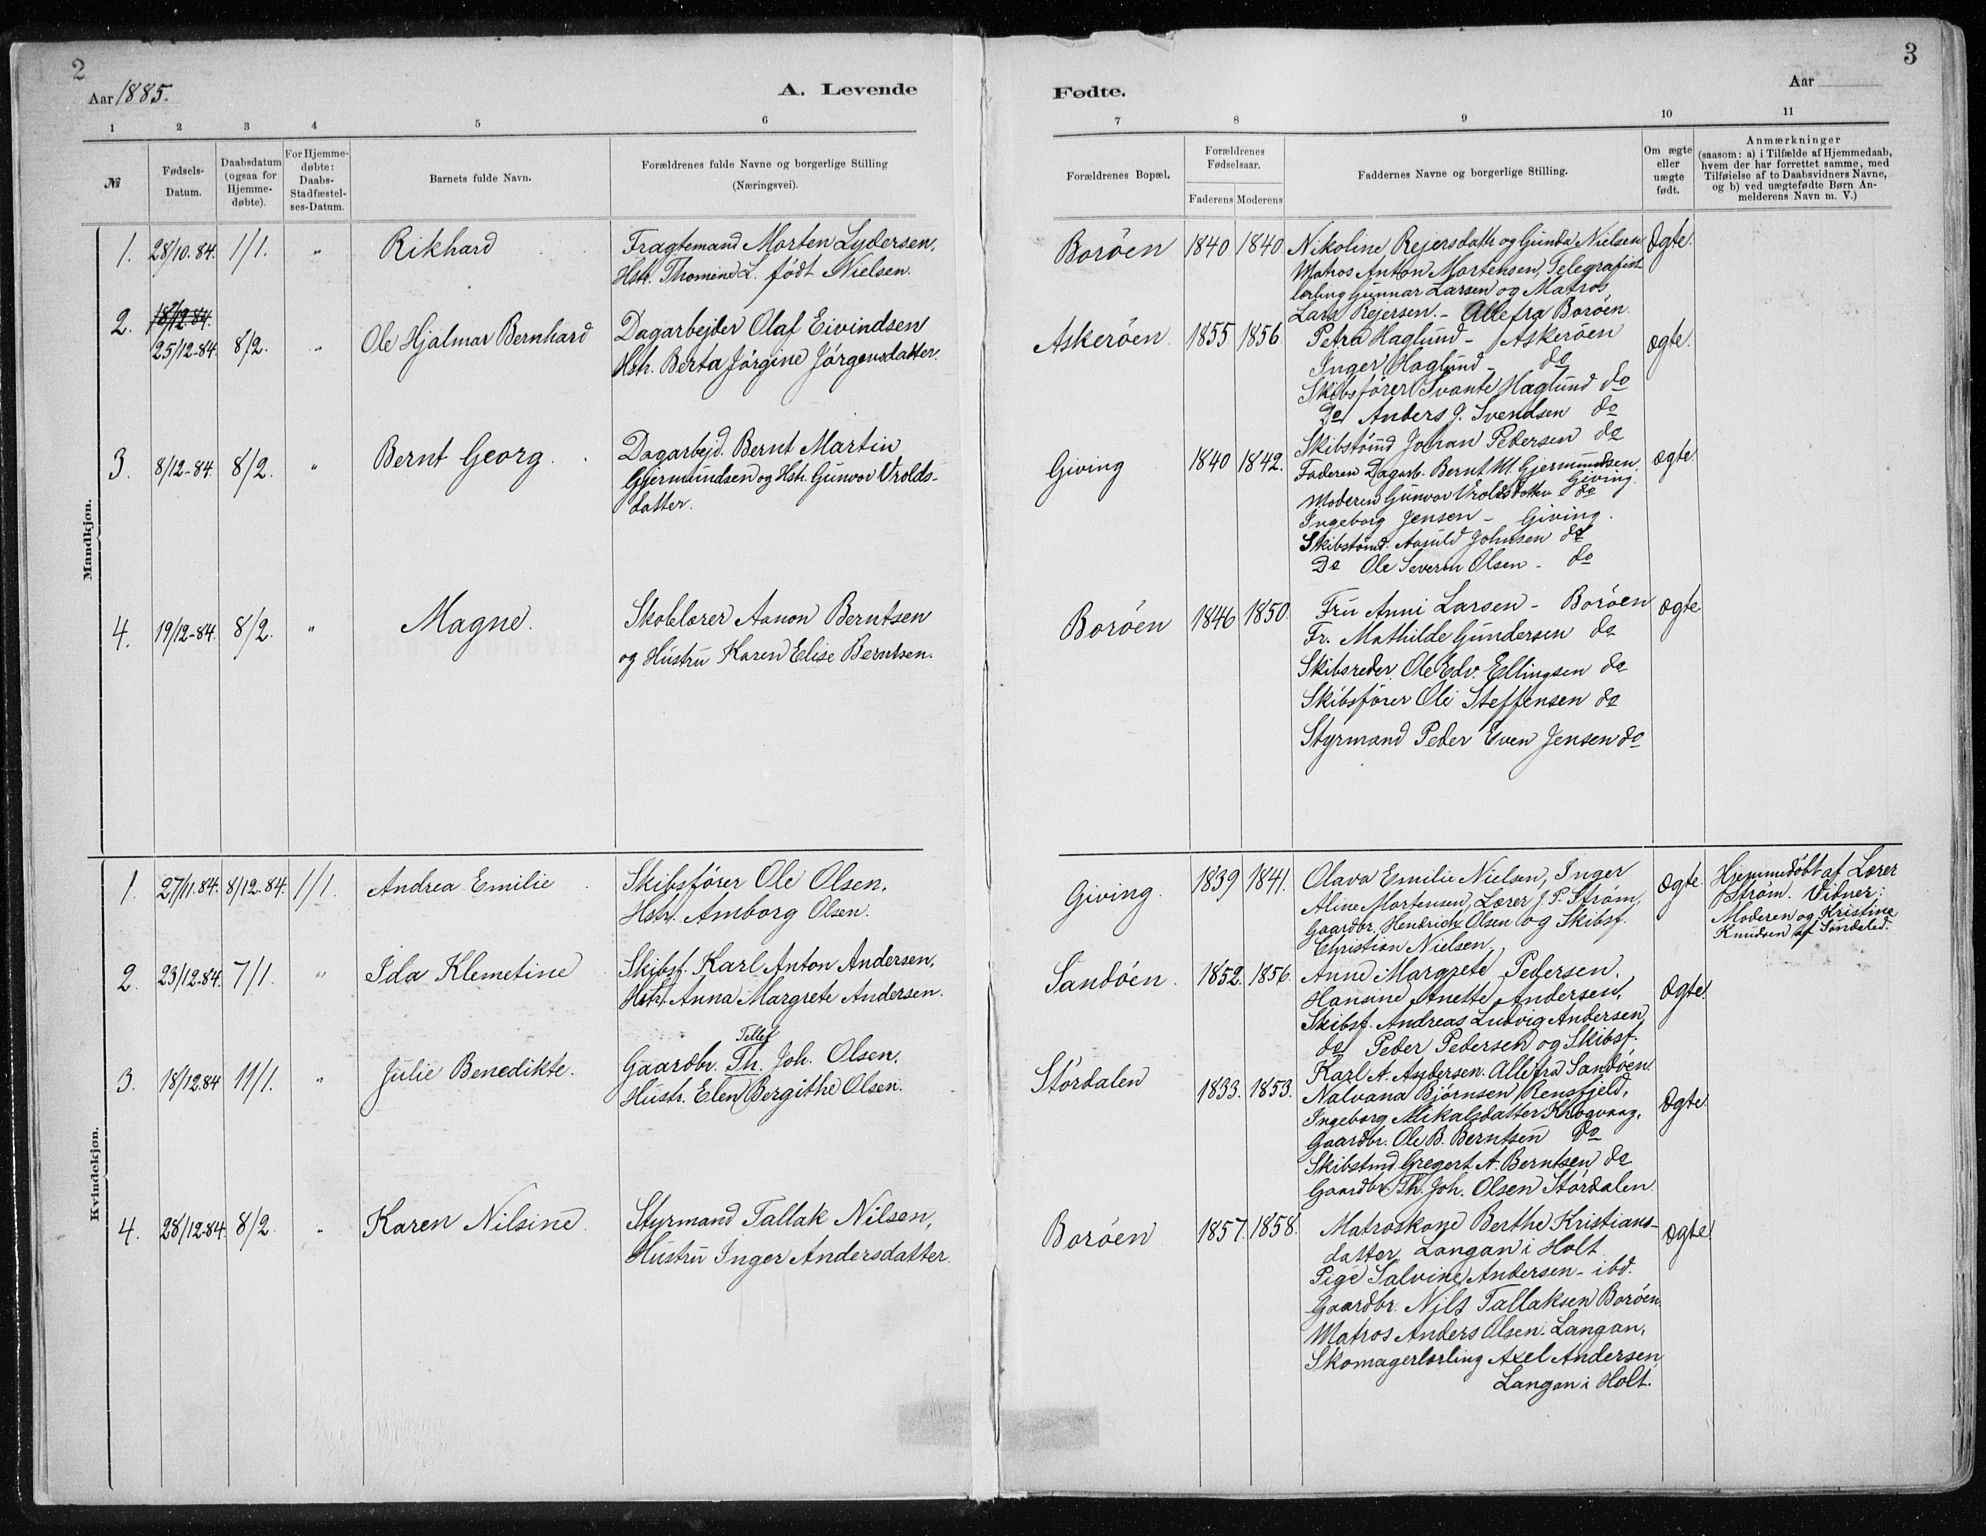 2
Aar 1885.
A. Levende
1 2 3 4 5 6
№
Fødsels-
Datum.
Daabsdatum
(ogsaa for
Hjemme-
døbte).
For Hjemme-
døbte:
Daabs-
Stadfæstel-
ses-Datum.
Barnets fulde Navn.
Forældrenes fulde Navne og borgerlige Stilling
(Næringsvei).
Mandkjøn.
1. 28/10.84. 1/1. " Rikhard
Fragtemand Morten Lydersen,
Hstr. Thomine L. født Nielsen.
2. 18/12.84.
25/12-84. 8/2. " Ole Hjalmar Bernhard
Dagarbejder Olaf Eivindsen
Hstr. Berta Jörgine Jörgensdatter.
3. 8/12-84. 8/2. " Bernt Georg.
Dagarbejd. Bernt Martin
Gjermundsen og Hstr. Gunvor Vrolds-
datter.
4. 19/12-84. 8/2. " Magne.
Skolelærer Aanon Berntsen
og Hustru Karen Elise Berntsen.
Kvindekjøn.
1. 27/11.84. 8/12-84. 1/1. Andrea Emilie
Skibsfører Ole Olsen,
Hstr. Amborg Olsen.
2. 23/12-84. 7/1. " Ida Klemetine
Skibsf. Karl Anton Andersen,
Hstr. Anna Margrete Andersen.
3. 18/12.84 11/1. " Julie Benedikte.
Tellef
Gaardbr. Th. Joh. Olsen,
Hustr. Elen Bergithe Olsen.
4. 28/12-84. 8/2. " Karen Nilsine
Styrmand Tallak Nilsen,
Hustru Inger Andersdatter.
3
Fødte.
Aar
7 8 9 10 11
Forældrenes Bopæl.
Forældrenes
Fødselsaar.
Faderens Moderens
Faddernes Navne og borgerlige Stilling.
Om ægte
eller
uægte
født.
Anmærkninger
(saasom: a) i Tilfælde af Hjemmedaab,
hvem der har forrettet samme, med
Tilføielse af to Daabsvidners Navne,
og b) ved uægtefødte Børn An-
melderens Navn m. V.)
Boröen 1840 1840. Nikoline Rejersdatr og Gunda Nielsen Ægte.
Matros Anton Mortensen, Telegrafist
lærling Gunnar Larsen og Matros
Lars Rejersen. - Alle fra Boröen.
Askeröen. 1855 1856. Petra Haglund - Askeröen ægte.
Inger Haglund - do
Skibsfører Svante Haglund do
Do Anders G. Svendsen do
Skibstömd Johan Pedersen do
Giving 1840 1842. Faderen Dagarb. Bernt M. Gjermundsen ægte
Giving.
Moderen Gunvor Vroldsdatter do
Ingeborg Jensen - Giving.
Skibstömd. Aasuld Johnsen do
Do Ole Severin Olsen - do
Boröen 1846 1850. Fru Anni Larsen - Boröen ægte
Fr. Mathilde Gundersen do
Skibsreder Ole Edv. Ellingsen do
Skibsfører Ole Steffensen do
Styrmand Peder Even Jensen do
Giving. 1839 1841. Olava Emilie Nielsen, Inger Ægte.
Aline Mortensen, Lærer J. P. Strøm,
Gaardbr. Hendrick Olsen og Skibsf.
Christian Nielsen.
Hjemmedöbt af Lærer
Strøm. Vidner:
Moderen og Kristine
Knudsen af Söndeled.
Sandöen. 1852. 1856. Anne Margrete Pedersen. Ægte.
Hansine Anette Andersen,
Skibsf. Andreas Ludvig Andersen,
do Peder Pedersen og Skibsf.
Karl A. Andersen. Alle fra Sandöen.
Stördalen 1833. 1853. Nalvana Bjørnsen Rensfjeld, Ægte.
Ingeborg Mikalsdatter Krogvaag,
Gaardbr. Ole B. Berntsen do
Skibstmd. Gregert A. Berntsen do
Gaardbr. Th. Joh. Olsen Stördalen
Boröen 1857. 1858. Matroskone Berthe Kristians- Ægte.
datter, Langan i Holt
Pige Salvine Andersen - ibd.
Gaardbr. Nils Tallaksen Boröen.
Matros Anders Olsen. Langan,
Skomagerlærling Axel Andersen
Langan i Holt.